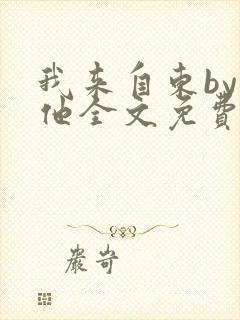 我来自东by
他全文免费
嚴岢